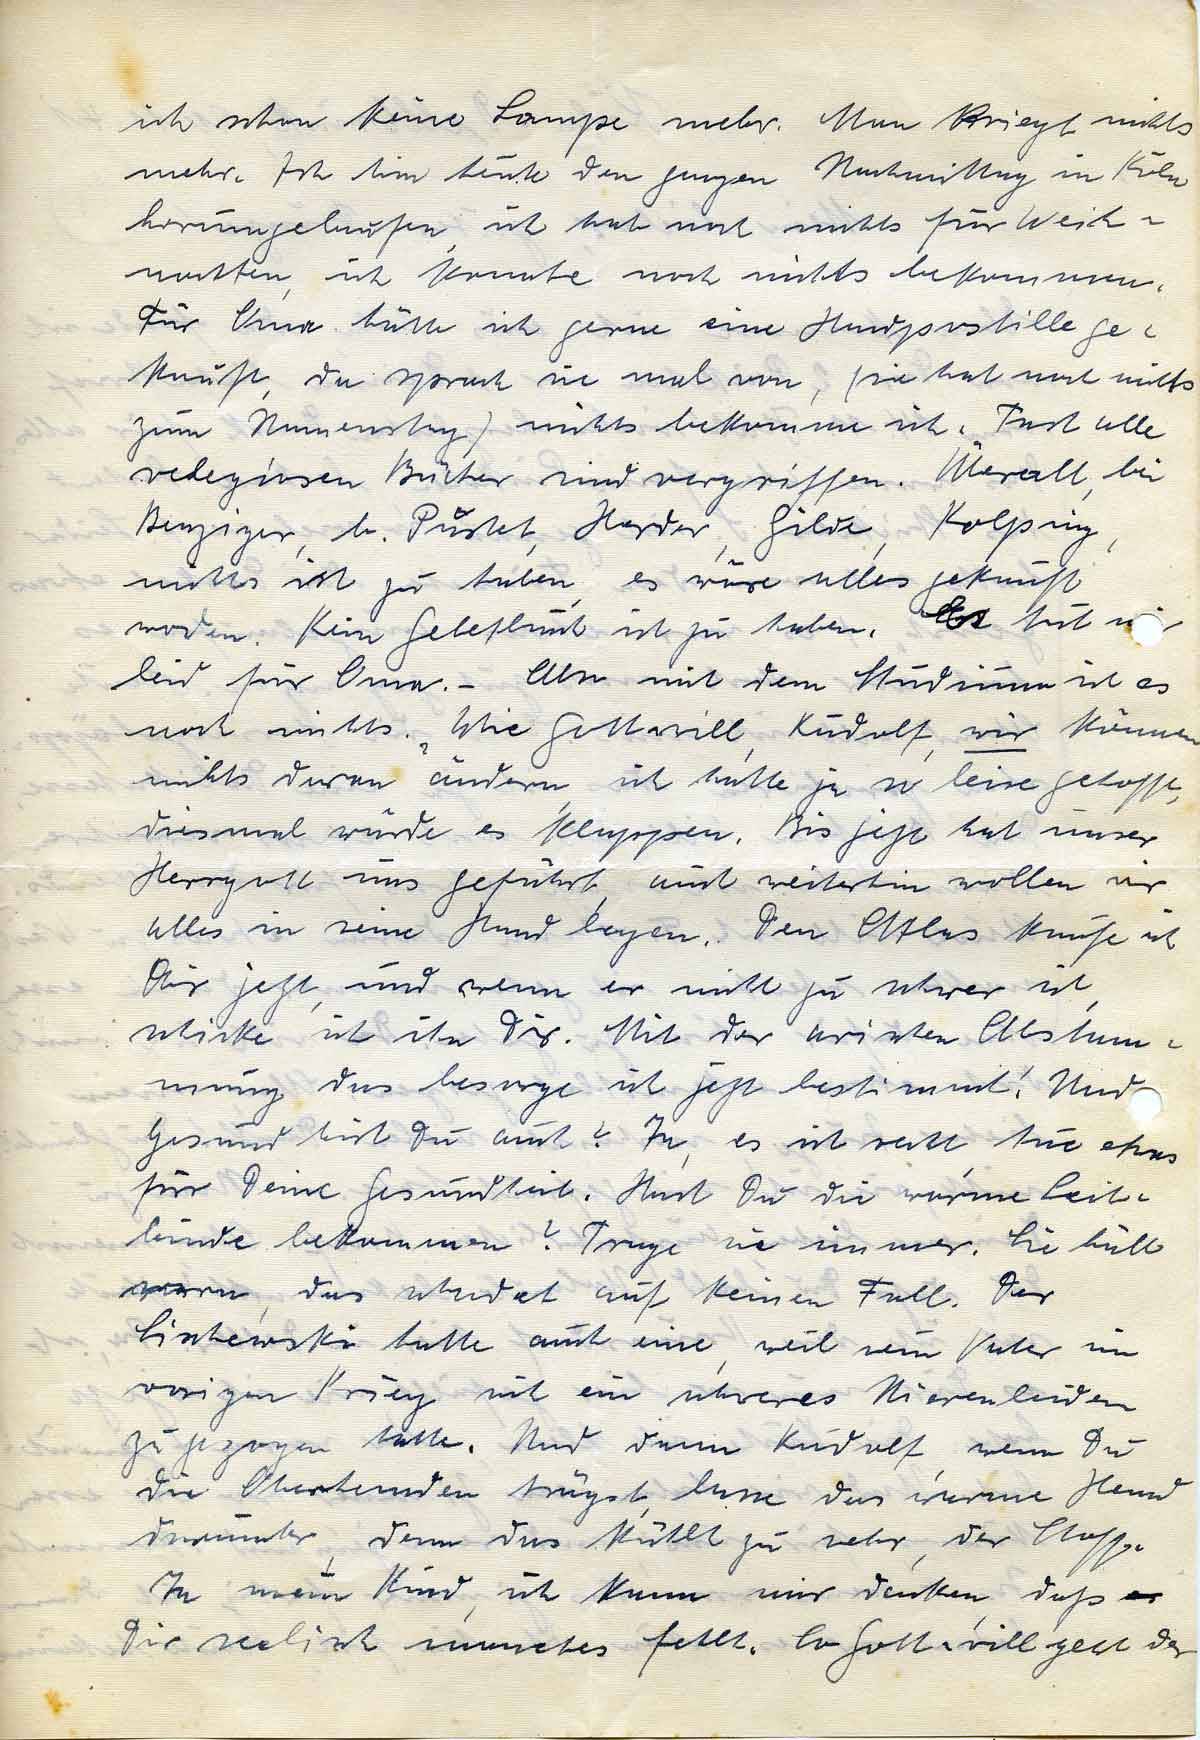 ich schon keine Lampe mehr. Man kriegt nichts
mehr. Ich bin heute den ganzen Nachmittag in Köln
herumgelaufen, ich hab noch nichts für Weih-
nachten, ich konnte noch nichts bekommen.
Für Oma hätte ich gerne eine Handpostille ge-
kauft, da sprach sie mal von, (sie hat noch nichts
zum Namenstag) nichts bekomme ich. Fast alle
relegiösen Bücher sind vergriffen. Überall, bei
Benziger, b. Püstet, Herder, Gilde, Kolping,
nichts ist zu haben, es wäre alles gekauft
woden. Kein Gebetbuch ist zu haben. Es tut mir
leid für Oma. – Also mit dem Studium ist es
noch nichts. „Wie Gott will, Rudolf, wir können
nichts daran ändern, ich hatte ja so leise gehofft,
diesmal würde es klappen. Bis jetzt hat unser
Herrgott uns geführt, auch weiterhin wollen wir
alles in seine Hand legen. Den Atlas kaufe ich
Dir jetzt, und wenn er nicht zu schwer ist,
schicke ich ihn Dir. Mit der arischen Abstam-
mung, das besorge ich jetzt bestimmt! Und
gesund bist Du auch? Ja, es ist recht tue etwas
für Deine Gesundheit. Hast Du die warme Leib-
binde bekommen? Trage sie immer. Sie hält
warm, das schadet auf keinen Fall. Der
Lischewski hatte auch eine, weil sein Vater im
vorigen Krieg sich ein schweres Nierenleiden
zugezogen hatte. Und dann Rudolf, wenn Du
die Oberhemden trägst, lasse das warme Hemd
darunter, denn das kühlt zu sehr, der Stoff.
Ja mein Kind, ich kann mir denken, daß
Dir seelisch manches fehlt. So Gott will geht der